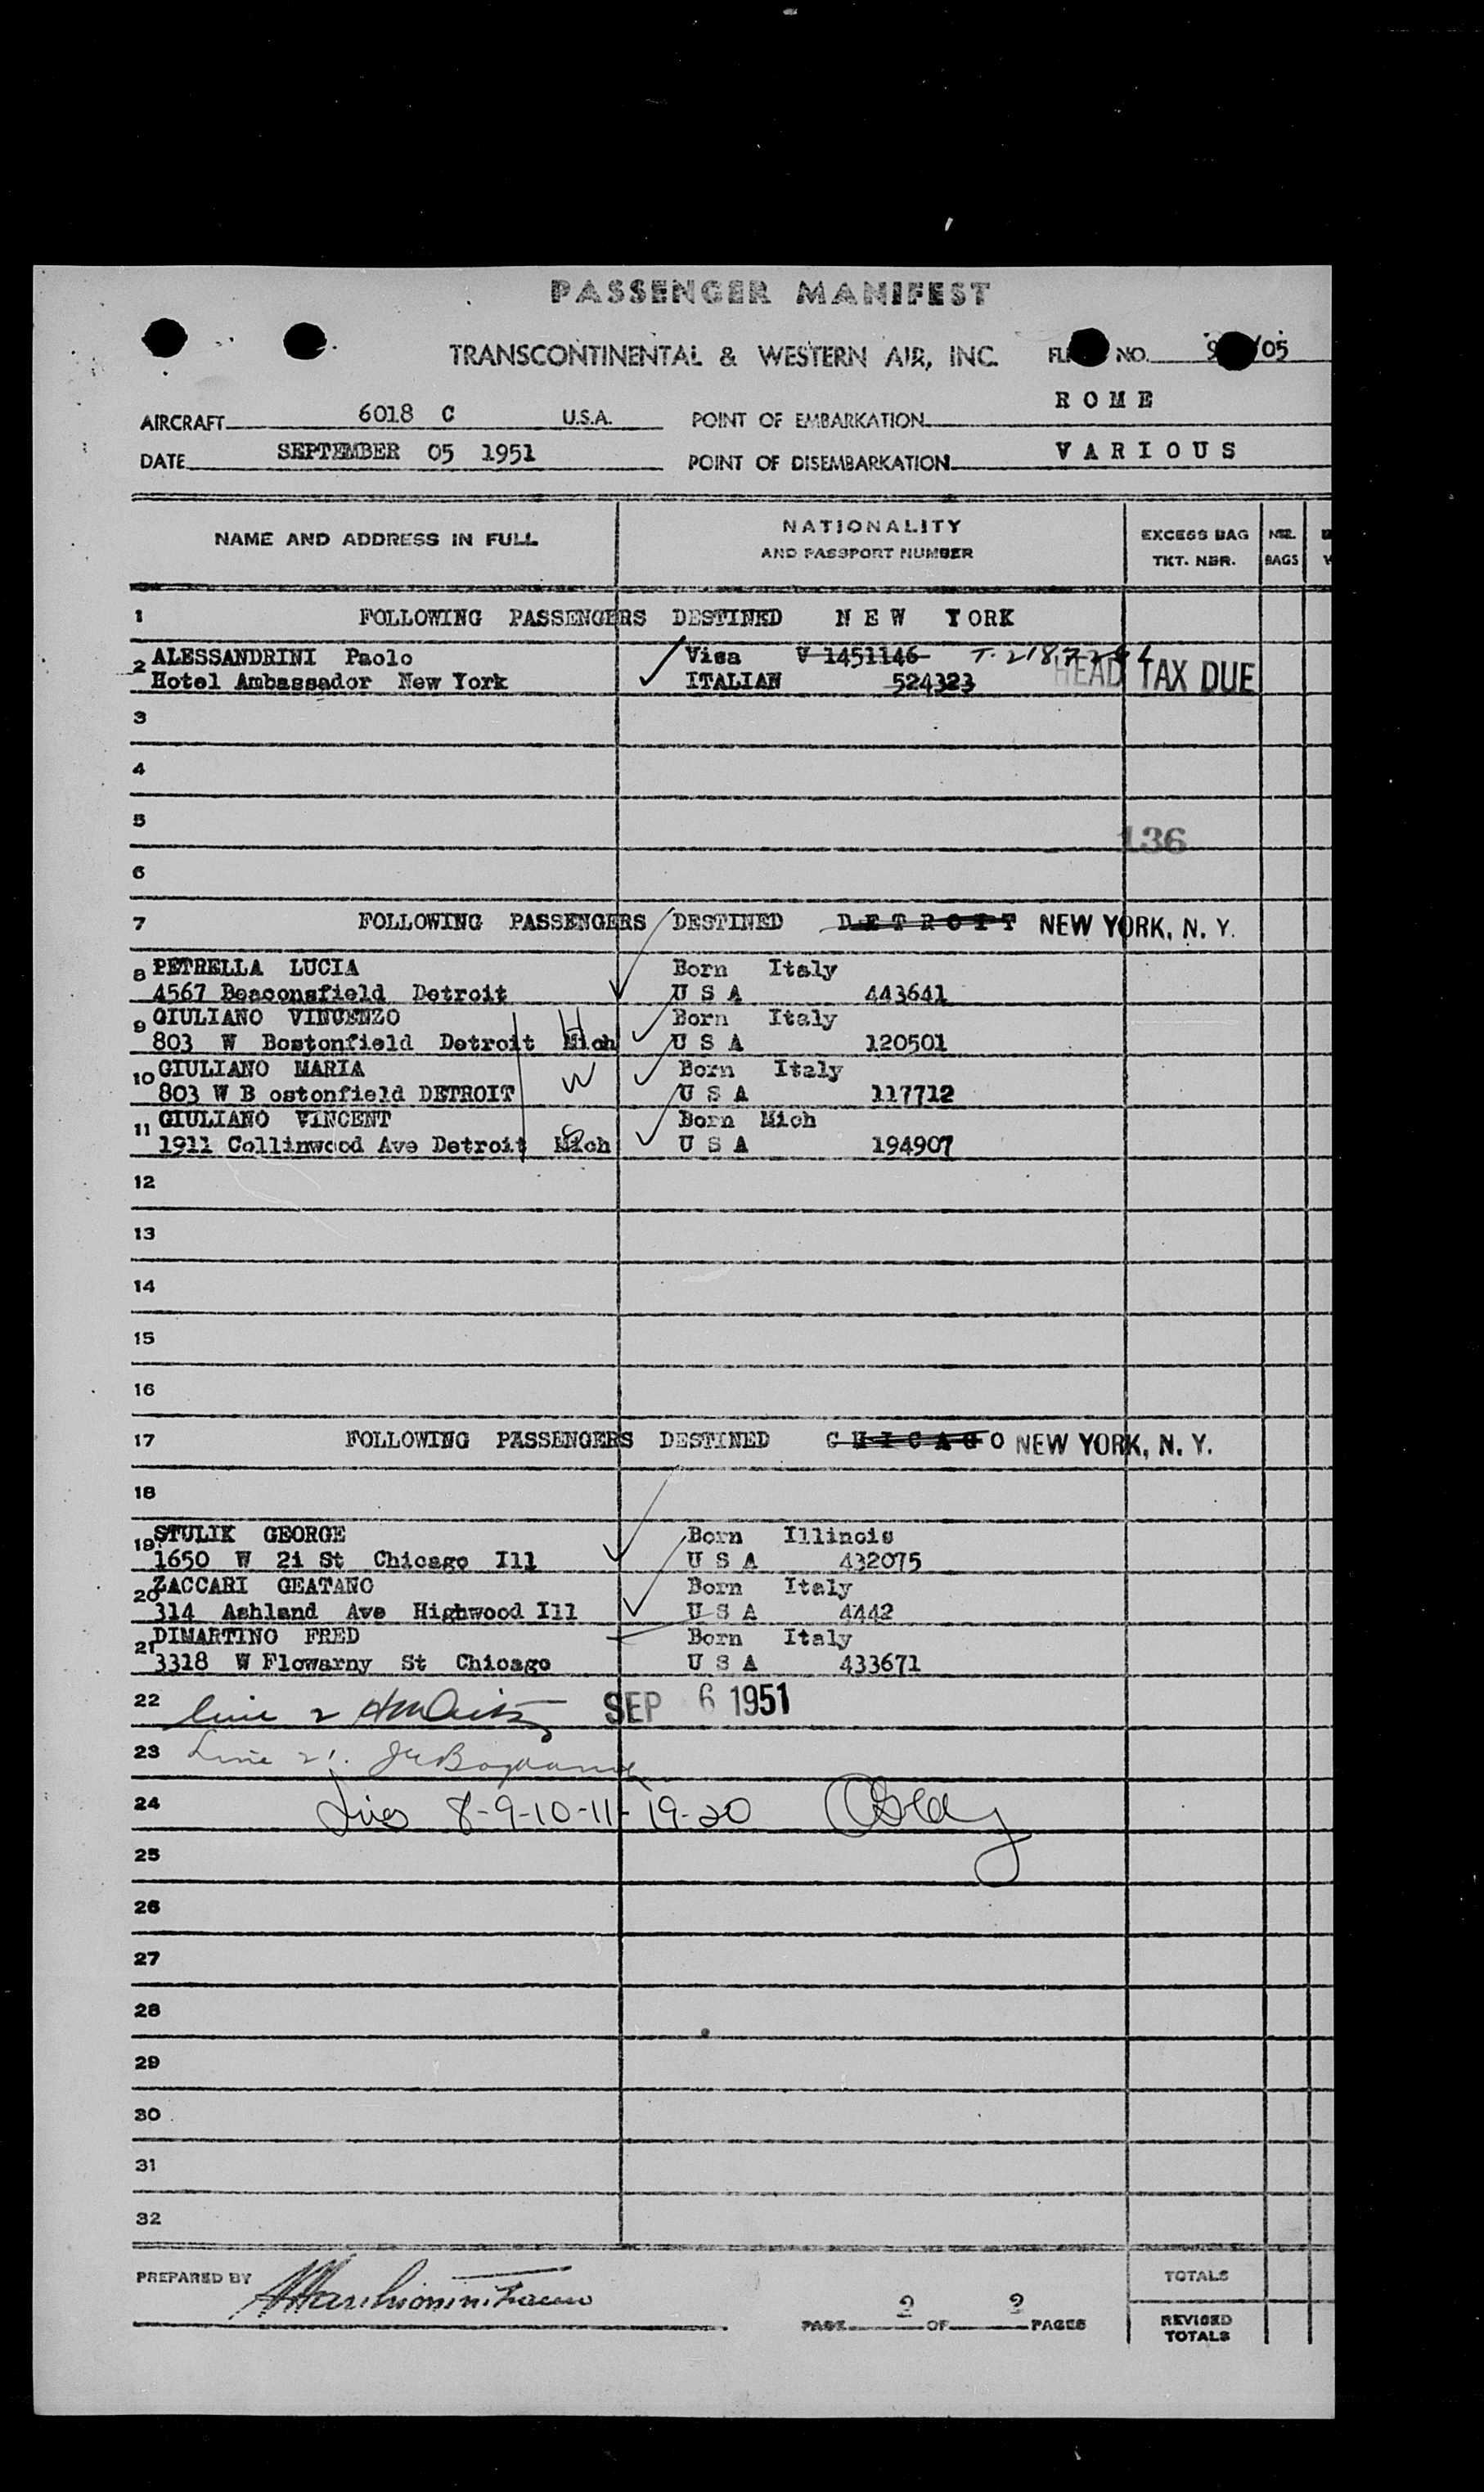 PASSENGER MANIFEST
TRANSCONTINENTAL & WESTERN AIR, INC. NO. /05
AIRCRAFT 6018 C U.S.A. POINT OF EMBARKATION ROME
DATE SEPTEMBER 05 1951 POINT OF DISEMBARKATION VARIOUS
NAME AND ADDRESS IN FULL NATIONALITY AND PASSPORT NUMBER EXCESS BAG TKT. NBR. NBR. BAGS
1 FOLLOWING PASSENGERS DESTINED NEW YORK
2 ALESSANDRINI Paolo Visa V 1451146
Hotel Ambassador New York ITALIAN 524323 HEAD TAX DUE
3
4
5
136
6
7 FOLLOWING PASSENGERS DESTINED DETROIT NEW YORK, N. Y.
8 PETRELLA LUCIA Born Italy
4567 Beaconsfield Detroit U S A 443641
9 GIULIANO VINCENZO Born Italy
803 W Bostonfield Detroit Mich U S A 120501
10 GIULIANO MARIA Born Italy
803 W B ostonfield DETROIT U S A 117712
11 GIULIANO VINCENT Born Mich
1911 Collinwood Ave Detroit Mich U S A 194907
12
13
14
15
16
17 FOLLOWING PASSENGERS DESTINED CHICAGO NEW YORK, N. Y.
18
19 STULIK GEORGE Born Illinois
1650 W 21 St Chicago Ill U S A 432075
20 ZACCARI GEATANO Born Italy
314 Ashland Ave Highwood Ill U S A 4442
21 DIMARTINO FRED Born Italy
3318 W Flowarny St Chicago U S A 433671
22 line 2 SEP 6 1951
23 Line 21.
24 8-9-10-11-19-20
25
26
27
28
29
30
31
32
PREPARED BY TOTALS
PAGE 2 OF 2 PAGES REVISED TOTALS